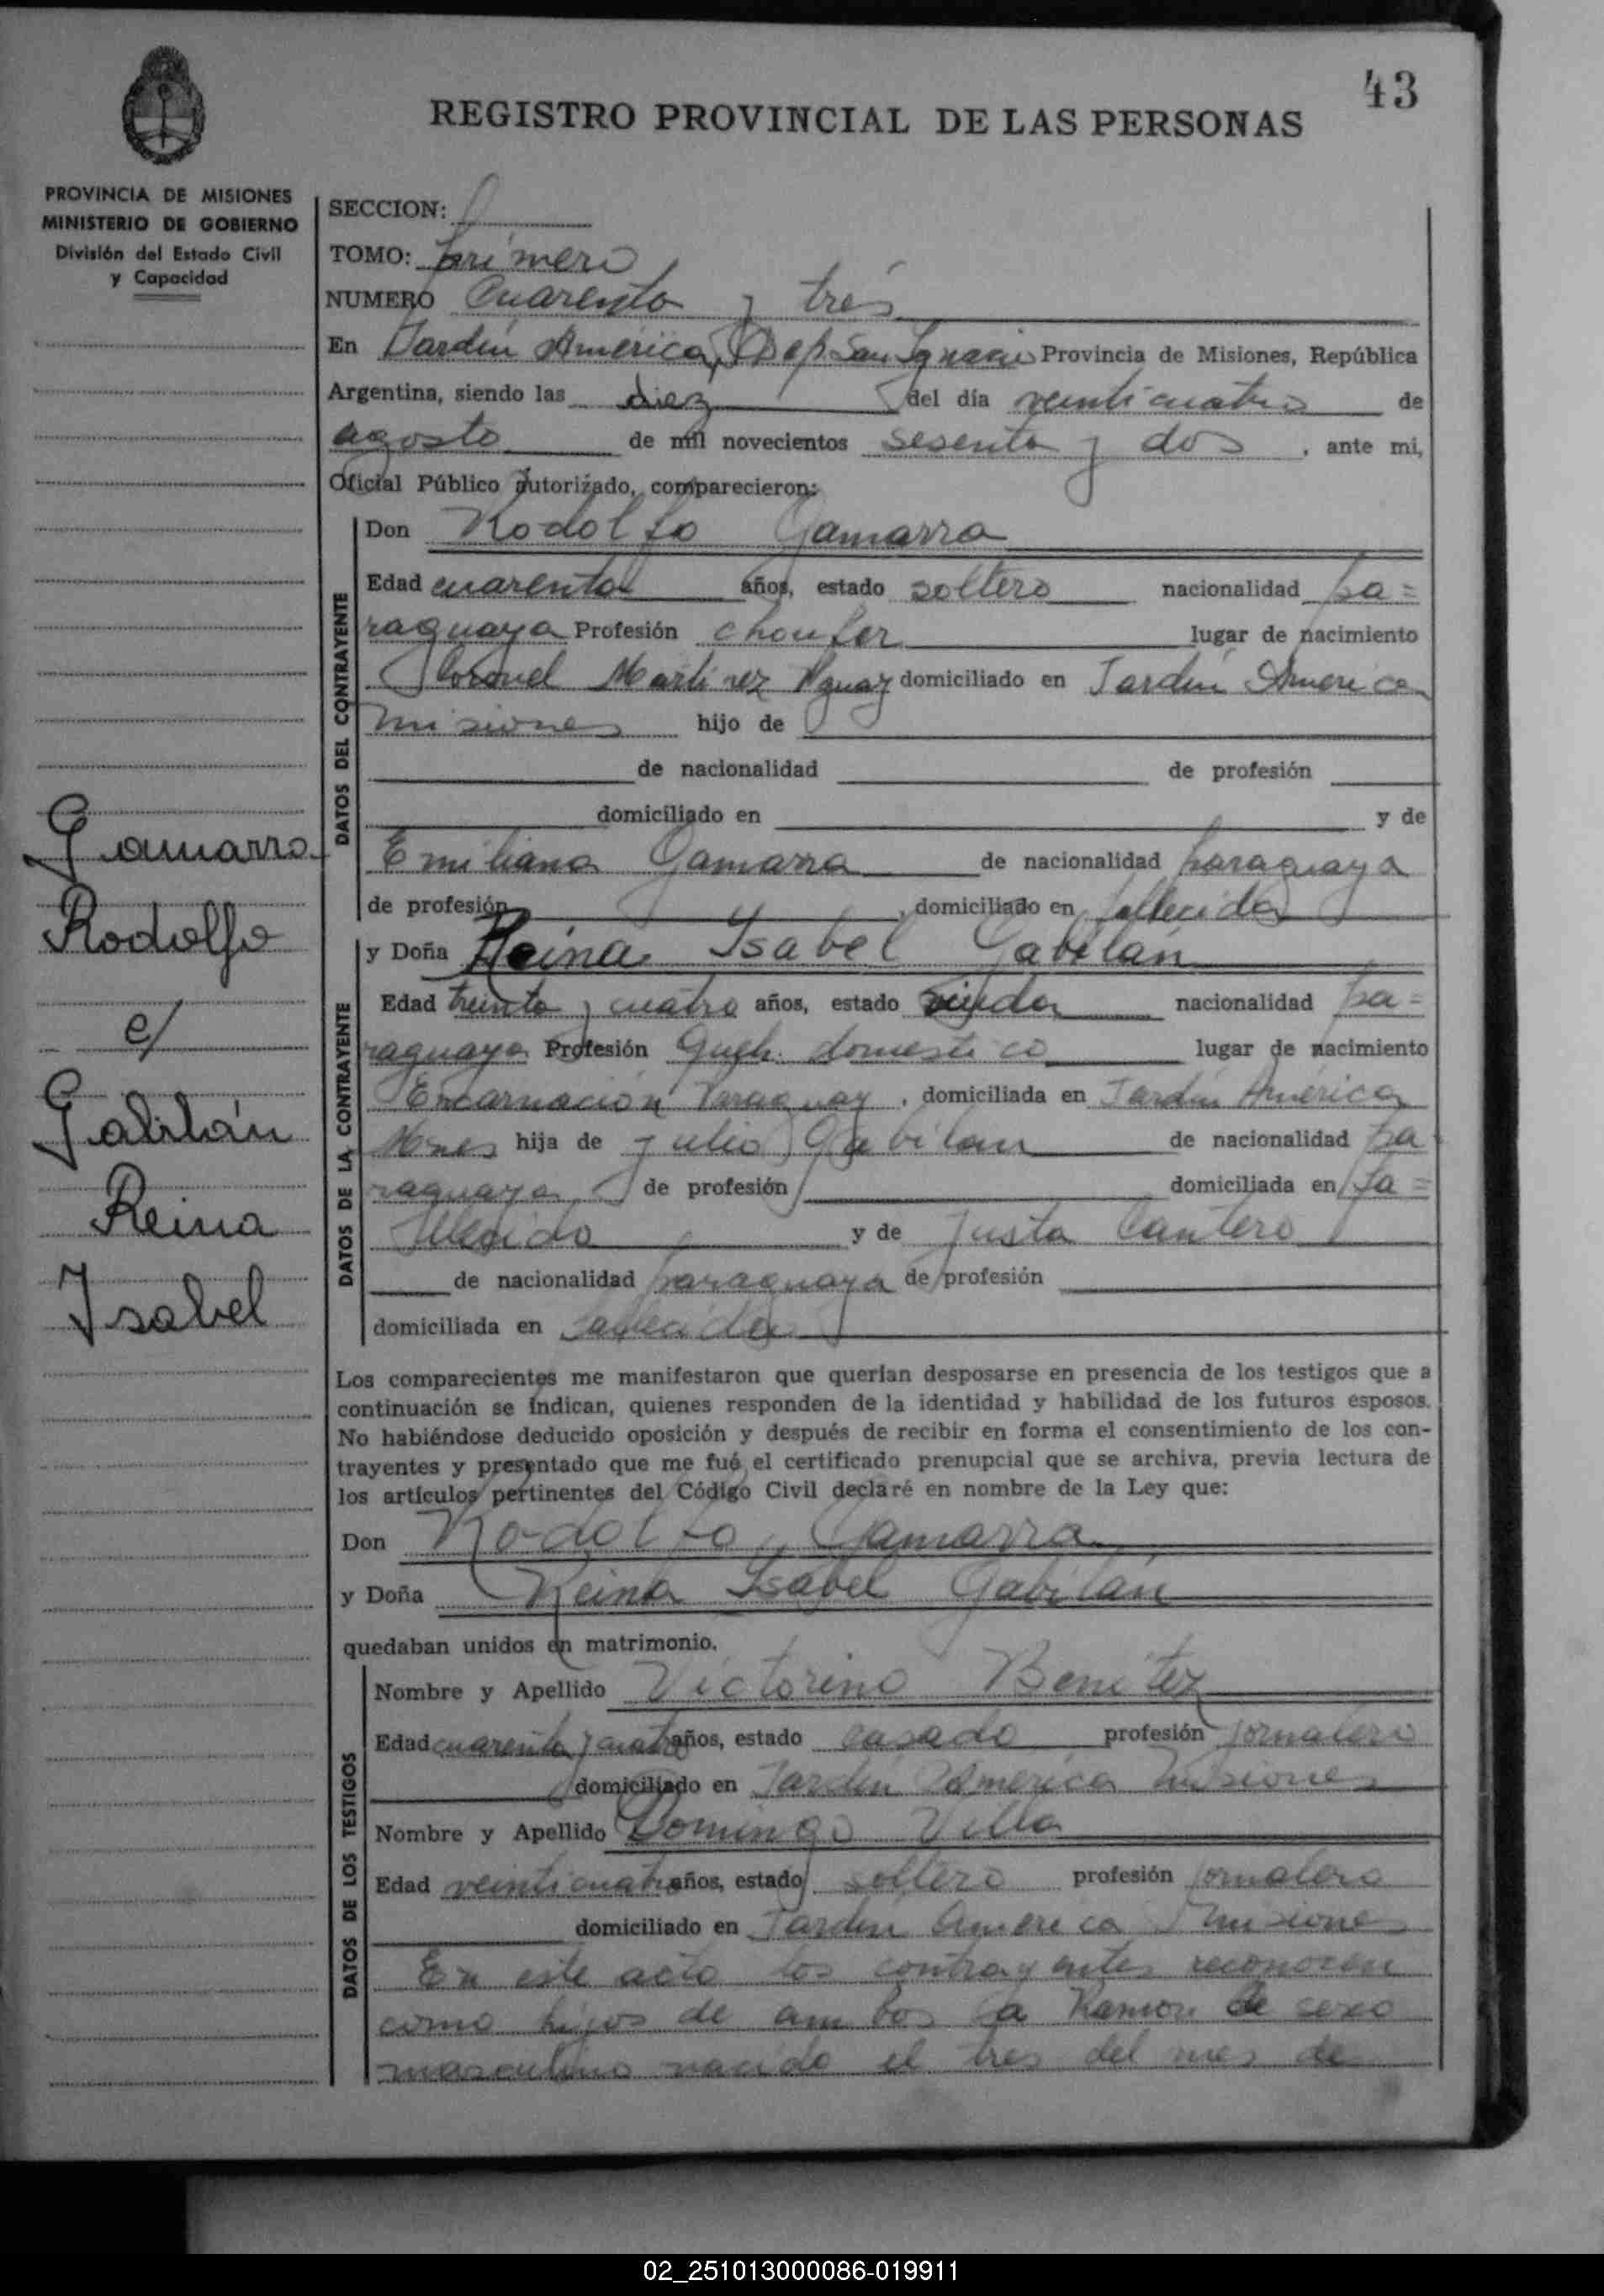 43
REGISTRO PROVINCIAL DE LAS PERSONAS
PROVINCIA DE MISIONES
MINISTERIO DE GOBIERNO
División del Estado Civil
y Capacidad
SECCION:
TOMO: primero
NUMERO Cuarenta y tres
En Jardín América, Dep. San Ignacio Provincia de Misiones, República
Argentina, siendo las diez del día veinticuatro de
agosto de mil novecientos sesenta y dos, ante mi,
Oficial Público autorizado, comparecieron:
DATOS DEL CONTRAYENTE
Don Rodolfo Gamarra
Edad cuarenta años, estado soltero nacionalidad pa=
raguaya Profesión choufer lugar de nacimiento
Coronel Martinez Pguay domiciliado en Jardín America
misiones hijo de
de nacionalidad de profesión
domiciliado en y de
Emiliana Gamarra de nacionalidad paraguaya
de profesión, domiciliado en fallecida
DATOS DE LA CONTRAYENTE
y Doña Reina Isabel Gabilán
Edad treinta y cuatro años, estado viuda nacionalidad pa=
raguaya Profesión Queh. domestico lugar de nacimiento
Encarnación Paraguay, domiciliada en Jardín América
Mnes hija de Julio Gabilan de nacionalidad pa
raguaya de profesión domiciliada en fa=
llecido y de Justa Cantero
de nacionalidad paraguaya de profesión
domiciliada en fallecida
Gamarra
Rodolfo
c/
Gabilán
Reina
Isabel
Los comparecientes me manifestaron que querían desposarse en presencia de los testigos que a
continuación se indican, quienes responden de la identidad y habilidad de los futuros esposos.
No habiéndose deducido oposición y después de recibir en forma el consentimiento de los con-
trayentes y presentado que me fué el certificado prenupcial que se archiva, previa lectura de
los artículos pertinentes del Código Civil declaré en nombre de la Ley que:
Don Rodolfo Gamarra
y Doña Reina Isabel Gabilán
quedaban unidos en matrimonio.
DATOS DE LOS TESTIGOS
Nombre y Apellido Victorino Benitez
Edad cuarenta y cuatro años, estado casado profesión jornalero
domiciliado en Jardín América Misiones
Nombre y Apellido Domingo Villa
Edad veinticuatro años, estado soltero profesión jornalero
domiciliado en Jardín America Misiones
En este acto los contrayentes reconocen
como hijos de ambos a Ramon de sexo
masculino nacido el tres del mes de
02_251013000086-019911